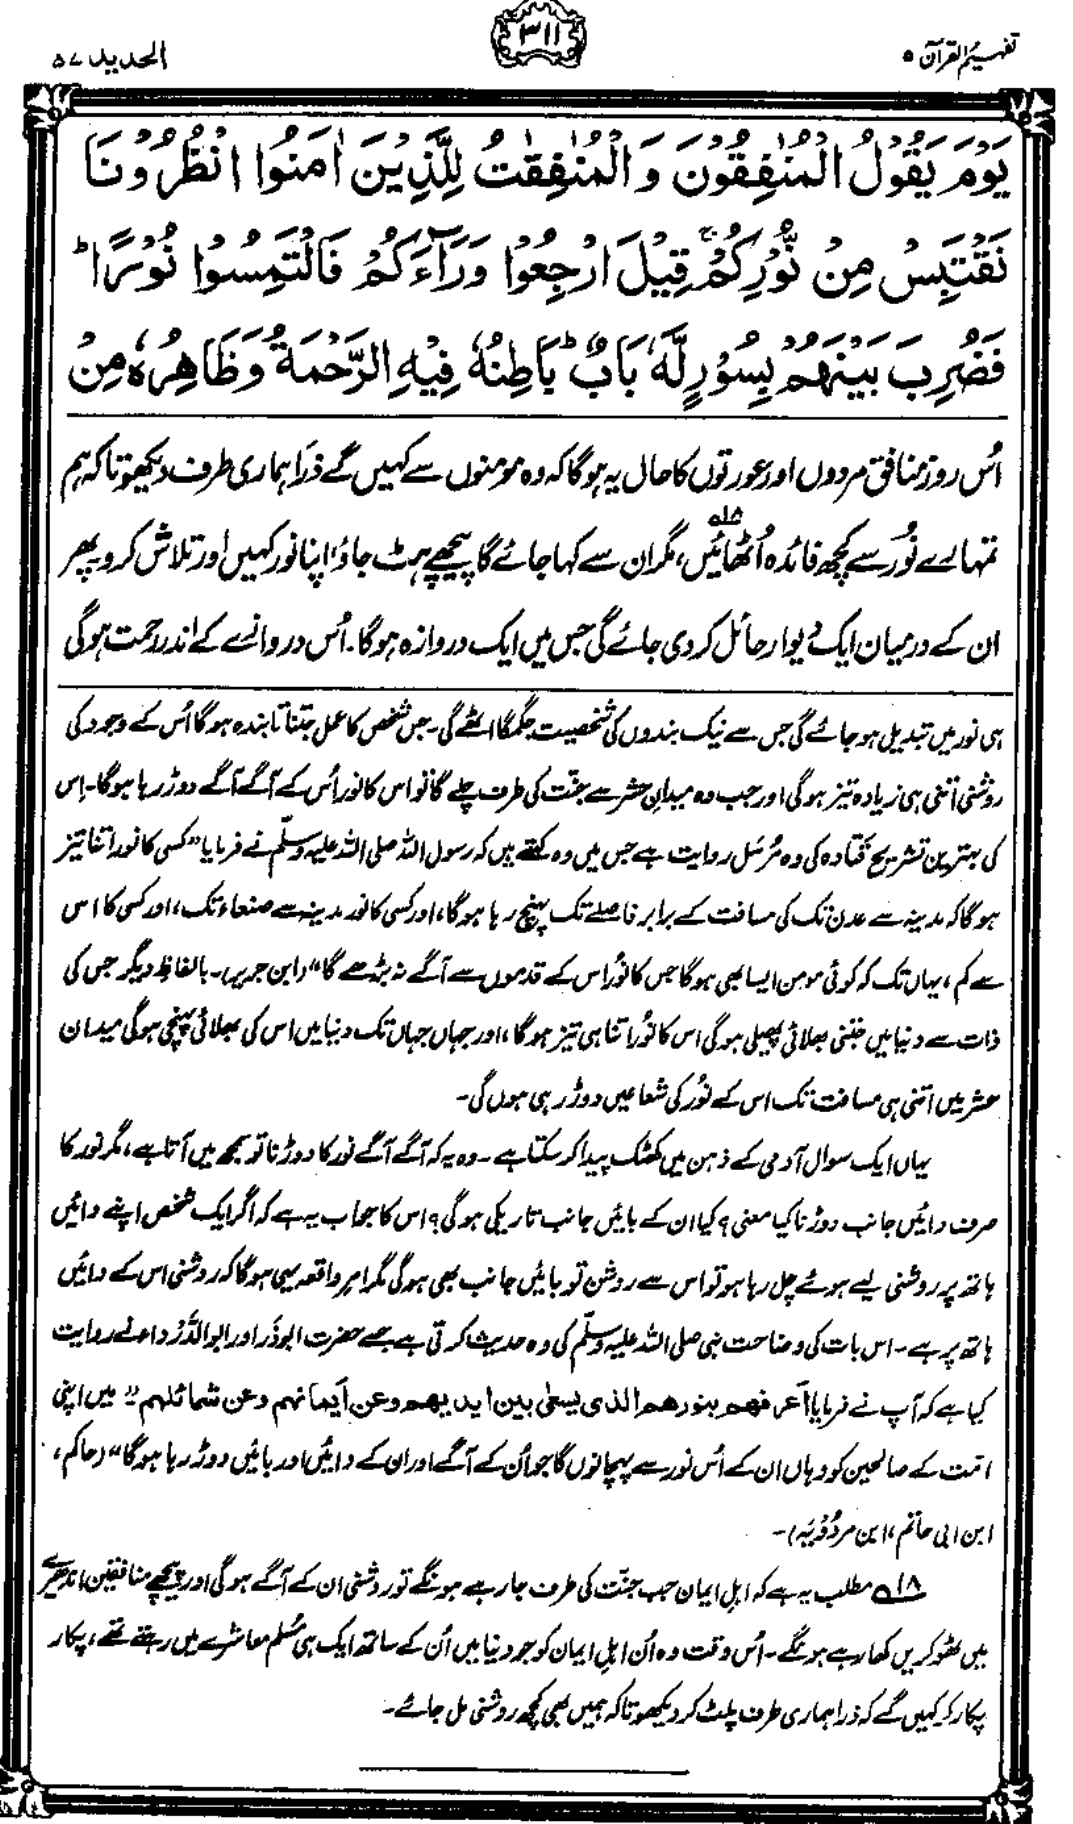 تفہیم القرآن ۵
۳۱۱
الحدید ۵۷
يَوْمَ يَقُوْلُ الْمُنٰفِقُوْنَ وَ الْمُنٰفِقٰتُ لِلَّذِيْنَ اٰمَنُوا انْظُرُوْنَا
نَقْتَبِسْ مِنْ نُّوْرِكُمْ ۚ قِيْلَ ارْجِعُوْا وَرَآءَكُمْ فَالْتَمِسُوْا نُوْرًا ؕ
فَضُرِبَ بَيْنَهُمْ بِسُوْرٍ لَّهٗ بَابٌ ؕ بَاطِنُهٗ فِيْهِ الرَّحْمَةُ وَظَاهِرُهٗ مِنْ
اُس روز منافق مردوں اور عورتوں کا حال یہ ہوگا کہ وہ مومنوں سے کہیں گے ذرا ہماری طرف دیکھو تاکہ ہم
تمہارے نُور سے کچھ فائدہ اُٹھائیں،۱۸؎ مگر ان سے کہا جائے گا پیچھے ہٹ جاؤ، اپنا نور کہیں اور تلاش کرو۔ پھر
ان کے درمیان ایک دیوار حائل کر دی جائے گی جس میں ایک دروازہ ہوگا۔ اُس دروازے کے اندر رحمت ہوگی
ہی نور میں تبدیل ہو جائے گی جس سے نیک بندوں کی شخصیت جگمگا اٹھے گی۔ جس شخص کا عمل جتنا تابندہ ہوگا اُس کے وجود کی
روشنی اتنی ہی زیادہ تیز ہوگی اور جب وہ میدانِ حشر سے جنّت کی طرف چلے گا تو اس کا نور اُس کے آگے آگے دوڑ رہا ہوگا۔ اِس
کی بہترین تشریح قَتادہ کی وہ مُرسَل روایت ہے جس میں وہ کہتے ہیں کہ رسول اللہ صلی اللہ علیہ وسلّم نے فرمایا ”کسی کا نور اتنا تیز
ہوگا کہ مدینہ سے عدن تک کی مسافت کے برابر فاصلے تک پہنچ رہا ہوگا، اور کسی کا نور مدینہ سے صنعاء تک، اور کسی کا اس
سے کم، یہاں تک کہ کوئی مومن ایسا بھی ہوگا جس کا نُور اس کے قدموں سے آگے نہ بڑھے گا“ (ابن جریر)۔ بالفاظِ دیگر جس کی
ذات سے دنیا میں جتنی بھلائی پھیلی ہوگی اس کا نُور اتنا ہی تیز ہوگا، اور جہاں جہاں تک دنیا میں اس کی بھلائی پہنچی ہوگی میدان
حشر میں اتنی ہی مسافت تک اس کے نُور کی شعاعیں دوڑ رہی ہوں گی۔
یہاں ایک سوال آدمی کے ذہن میں کھٹک پیدا کر سکتا ہے۔ وہ یہ کہ آگے آگے نور کا دوڑنا تو سمجھ میں آتا ہے، مگر نور کا
صرف دائیں جانب دوڑنا کیا معنی؟ کیا ان کے بائیں جانب تاریکی ہوگی؟ اس کا جواب یہ ہے کہ اگر ایک شخص اپنے دائیں
ہاتھ پر روشنی لیے ہوئے چل رہا ہو تو اس سے روشن تو بائیں جانب بھی ہوگی مگر امرِ واقعہ یہی ہوگا کہ روشنی اس کے دائیں
ہاتھ پر ہے۔ اس بات کی وضاحت نبی صلی اللہ علیہ وسلّم کی وہ حدیث کرتی ہے جسے حضرت ابوذَر اور ابوالدَّرْداء نے روایت
کیا ہے کہ آپ نے فرمایا اَعرفھم بنورھم الذی یسعٰی بین ایدیھم وعن اَیمانھم وعن شمائلھم ”میں اپنی
امّت کے صالحین کو وہاں ان کے اُس نور سے پہچانوں گا جو اُن کے آگے اور ان کے دائیں اور بائیں دوڑ رہا ہوگا“ (حاکم،
ابن ابی حاتم، ابن مردُوْیَہ)۔
۱۸؎ مطلب یہ ہے کہ اہلِ ایمان جب جنّت کی طرف جا رہے ہونگے تو روشنی ان کے آگے ہوگی اور پیچھے منافقین اندھیرے
میں ٹھوکریں کھا رہے ہونگے۔ اُس وقت وہ اُن اہلِ ایمان کو جو دنیا میں اُن کے ساتھ ایک ہی مُسلم معاشرے میں رہتے تھے، پکار
پکار کر کہیں گے کہ ذرا ہماری طرف پلٹ کر دیکھو تاکہ ہمیں بھی کچھ روشنی مل جائے۔